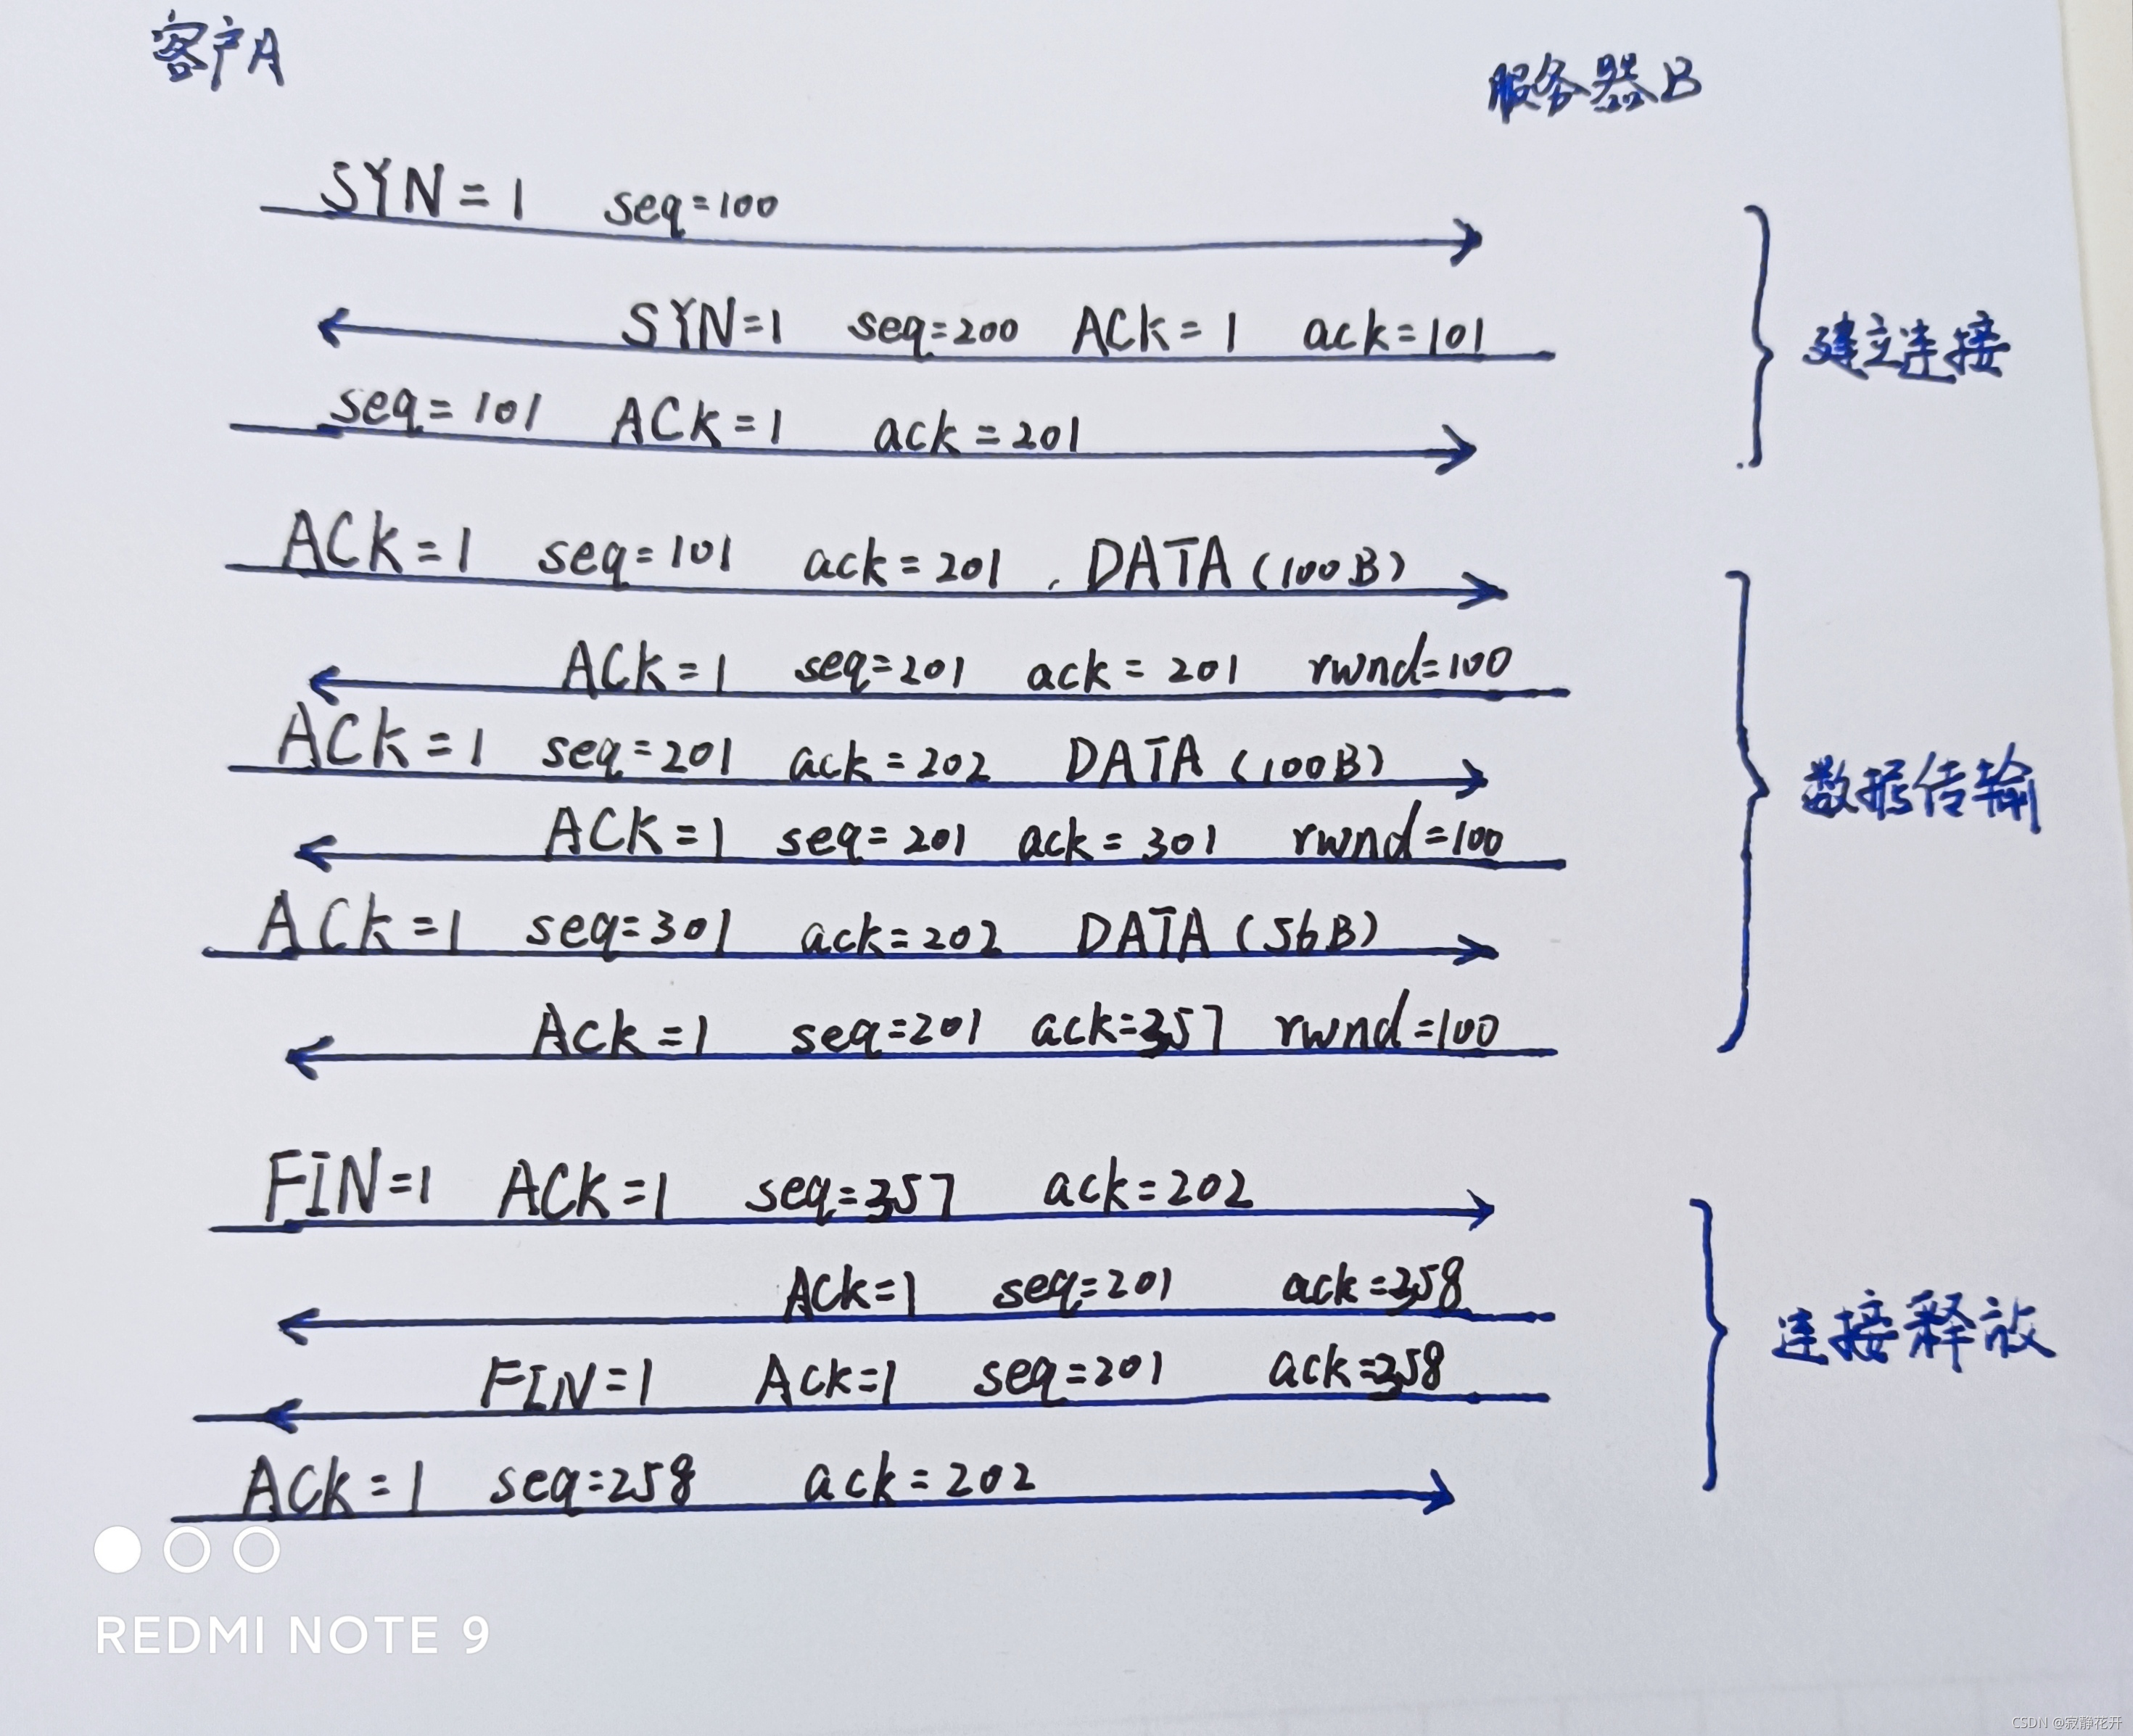 客户A
服务器B
SYN=1 seq=100
SYN=1 seq=200 ACK=1 ack=101
建立连接
seq=101 ACK=1 ack=201
ACK=1 seq=101 ack=201 . DATA (100B)
ACK=1 seq=201 ack=201 rwnd=100
ACK=1 seq=201 ack=202 DATA (100B)
数据传输
ACK=1 seq=201 ack=301 rwnd=100
ACK=1 seq=301 ack=202 DATA (56B)
Ack=1 seq=201 ack=357 rwnd=100
FIN=1 ACK=1 seq=357 ack=202
Ack=1 seq=201 ack=358
连接释放
FIN=1 Ack=1 seq=201 ack=358
Ack=1 seq=258 ack=202
REDMI NOTE 9
CSDN @寂静花开